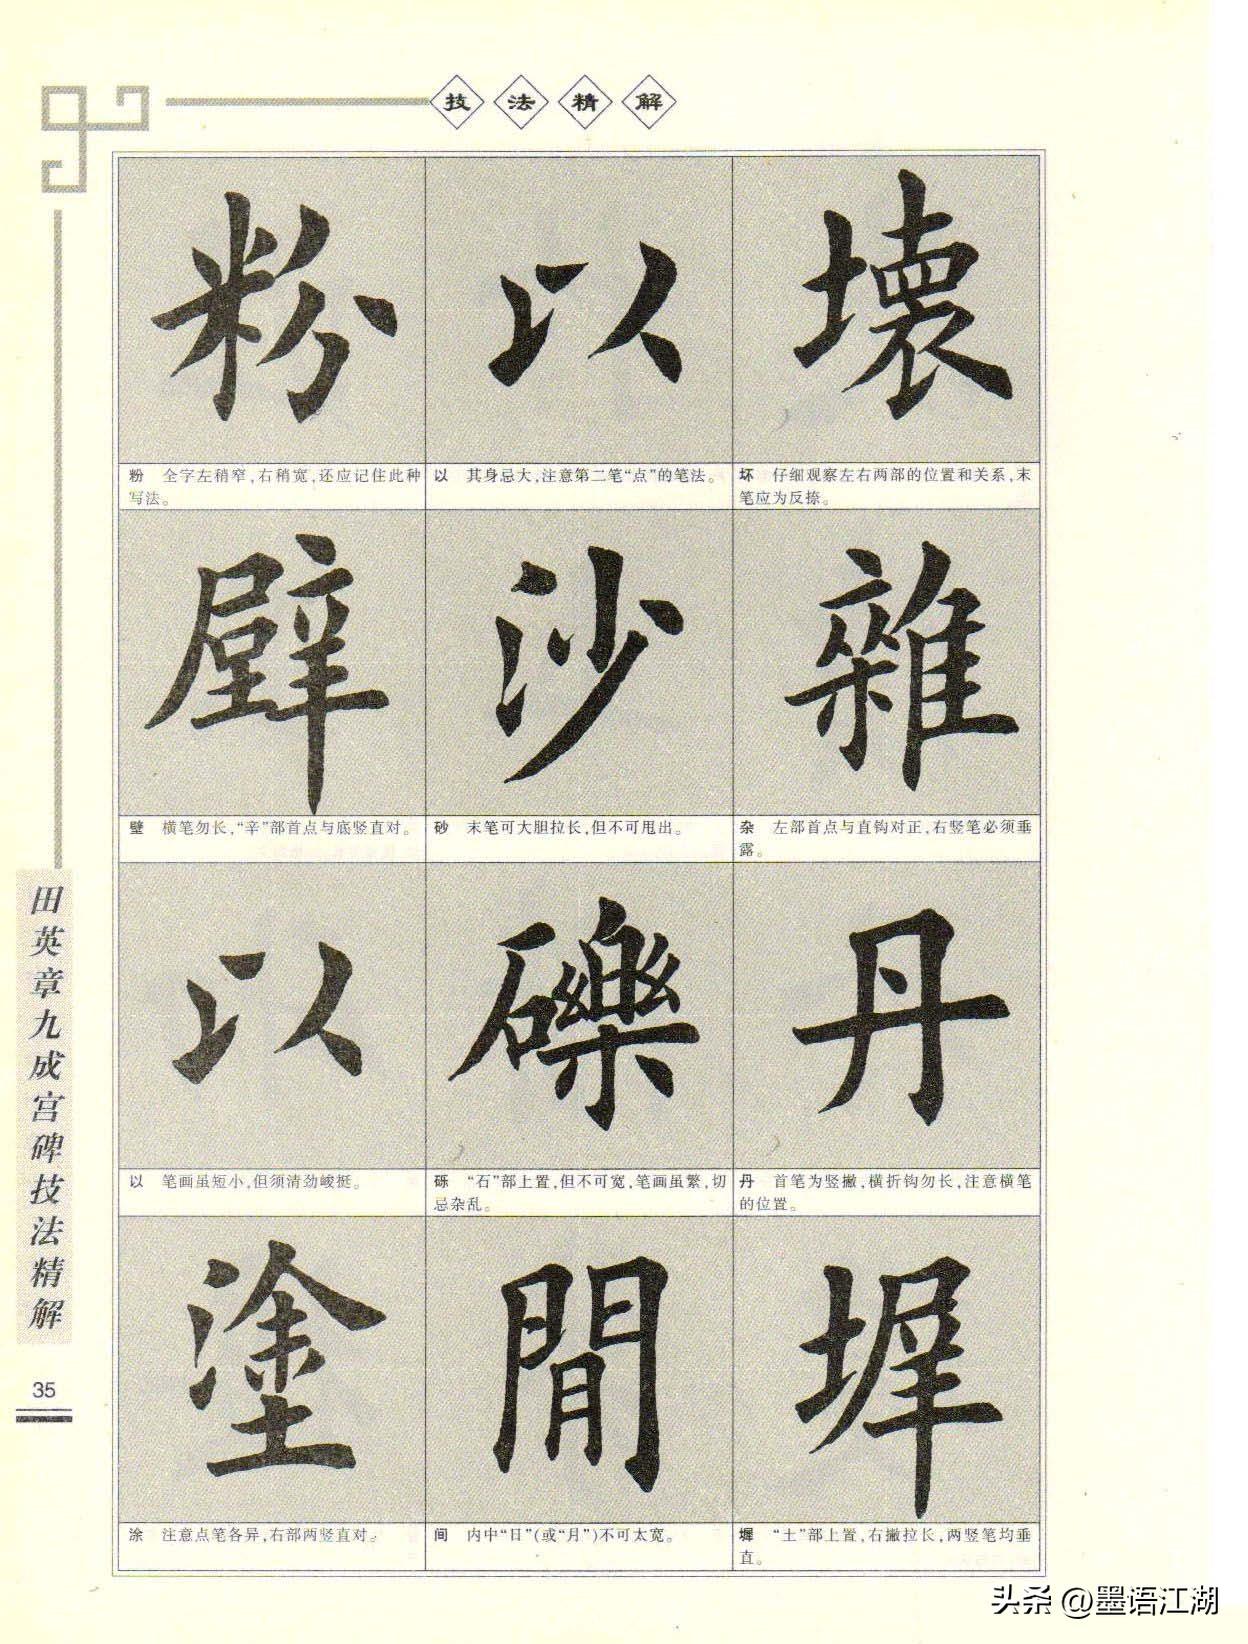 技法精解
粉
以
壞
粉　全字左稍窄,右稍宽,还应记住此种
写法。
以　其身忌大,注意第二笔“点”的笔法。
坏　仔细观察左右两部的位置和关系,末
笔应为反捺。
壁
沙
雜
壁　横笔勿长,“辛”部首点与底竖直对。
砂　末笔可大胆拉长,但不可甩出。
杂　左部首点与直钩对正,右竖笔必须垂
露。
以
礫
丹
以　笔画虽短小,但须清劲峻挺。
砾　“石”部上置,但不可宽,笔画虽繁,切
忌杂乱。
丹　首笔为竖撇,横折钩勿长,注意横笔
的位置。
塗
間
墀
涂　注意点笔各异,右部两竖直对。
间　内中“日”(或“月”)不可太宽。
墀　“土”部上置,右撇拉长,两竖笔均垂
直。
田英章九成宫碑技法精解
35
头条 @墨语江湖